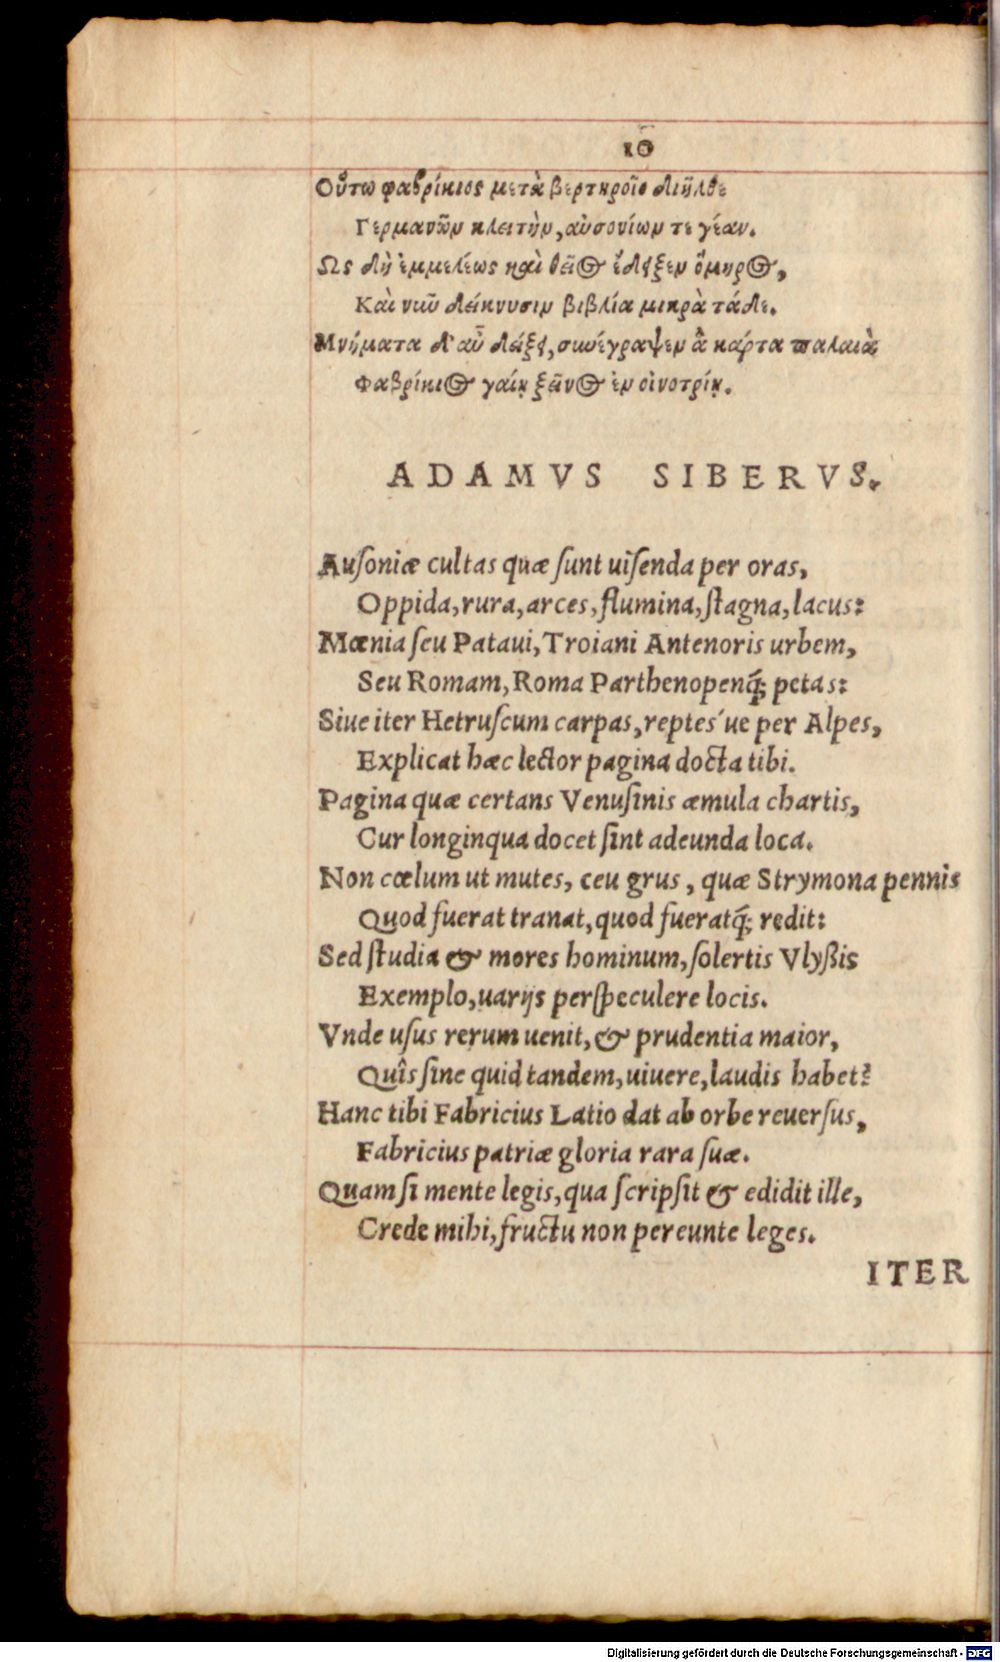 10
Οὕτω φαβρίκιος μετὰ βερτηροῖο διῆλθε
Γερμανῶν κλειτὴν, αὐσονίων τε γέαν.
Ως δὴ ἐμμελέως καὶ θεῖος ἔδειξεν ὅμηρος,
Καὶ νιῦ δείκνυσιν βιβλία μικρὰ τάδε.
Μνήματα δ' αὖ δείξει, συνέγραψεν ἃ κάρτα παλαιὰ
Φαβρίκιος γαίῃ ξεῖνος ἐν οἰνοτρίῃ.
ADAMVS SIBERVS.
Auſoniæ cultas quæ ſunt uiſenda per oras,
Oppida, rura, arces, flumina, ſtagna, lacus:
Mœnia ſeu Pataui, Troiani Antenoris urbem,
Seu Romam, Roma Parthenopenq́; petas:
Siue iter Hetruſcum carpas, reptes´ue per Alpes,
Explicat hæc lector pagina docta tibi.
Pagina quæ certans Venuſinis æmula chartis,
Cur longinqua docet ſint adeunda loca.
Non cœlum ut mutes, ceu grus, quæ Strymona pennis
Quod fuerat tranat, quod fueratq́; redit:
Sed ſtudia & mores hominum, ſolertis Vlyßis
Exemplo, uarijs perſpeculere locis.
Vnde uſus rerum uenit, & prudentia maior,
Quîs ſine quid tandem, uiuere, laudis habet?
Hanc tibi Fabricius Latio dat ab orbe reuerſus,
Fabricius patriæ gloria rara ſuæ.
Quam ſi mente legis, qua ſcripſit & edidit ille,
Crede mihi, fructu non pereunte leges.
ITER
Digitalisierung gefördert durch die Deutsche Forschungsgemeinschaft - DFG